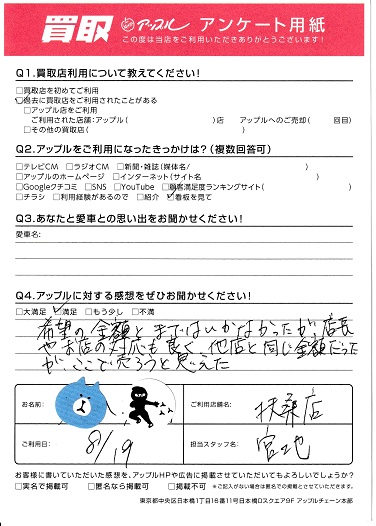 買取 アップル アンケート用紙
この度は当店をご利用いただきありがとうございます!
Q1.買取店利用について教えてください!
□買取店を初めてご利用
□過去に買取店をご利用されたことがある
□アップル店をご利用
ご利用された店舗:アップル( )店 アップルへのご売却( 回目)
□その他の買取店( )
Q2.アップルをご利用になったきっかけは?(複数回答可)
□テレビCM □ラジオCM □新聞・雑誌(媒体名/ )
□アップルのホームページ □インターネット(サイト名 )
□Googleクチコミ □SNS □YouTube □顧客満足度ランキングサイト( )
□チラシ □利用経験があるので □紹介 □看板を見て
Q3.あなたと愛車との思い出をお聞かせください!
愛車名:
Q4.アップルに対する感想をぜひお聞かせください!
□大満足 □満足 □もう少し □不満
希望の金額とまではいかなかったが、店長
やお店の対応も良く、他店と同じ金額だった
が、ここで売ろうと思えた
お名前:
ご利用店舗名: 扶桑店
ご利用日: 8/19
担当スタッフ名: 宮地
お客様に書いていただいた感想を、アップルHPや広告に掲載させていただいてもよろしいでしょうか?
□実名で掲載可 □匿名なら掲載可 □掲載不可 ※ご記入がない場合は匿名での掲載とさせていただきます。
東京都中央区日本橋1丁目16番11号日本橋Dスクエア9F アップルチェーン本部